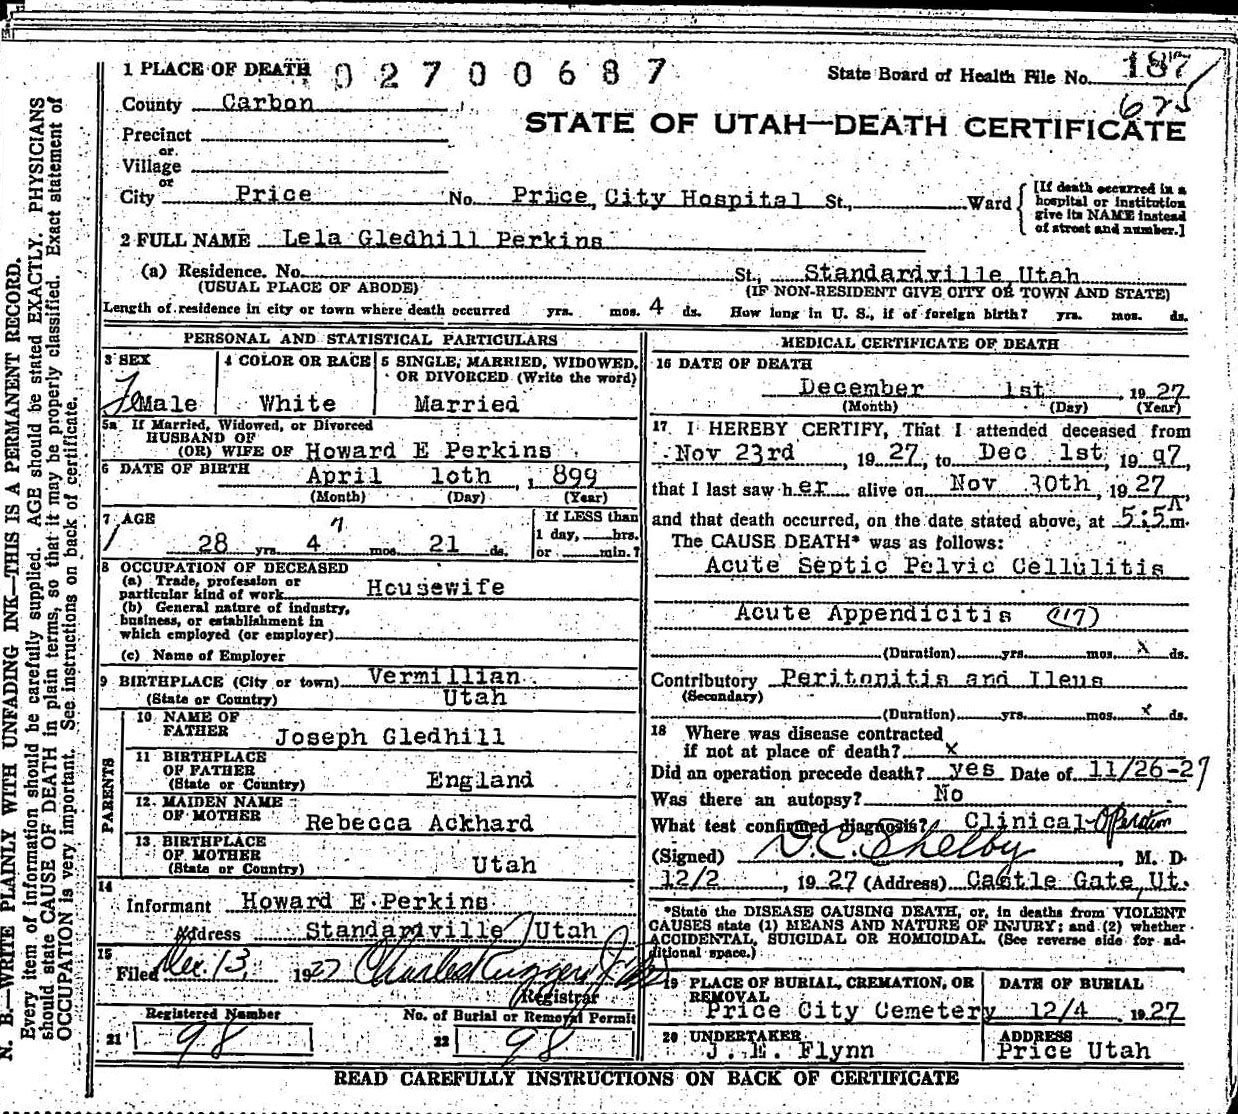 1 PLACE OF DEATH 02700687
State Board of Health File No. 187
625
County Carbon
STATE OF UTAH—DEATH CERTIFICATE
Precinct
or
Village
or
City Price No. Price City Hospital St., Ward
[If death occurred in a
hospital or institution
give its NAME instead
of street and number.]
2 FULL NAME Lela Gledhill Perkins
(a) Residence. No. St., Standardville, Utah
(USUAL PLACE OF ABODE) (IF NON-RESIDENT GIVE CITY OR TOWN AND STATE)
Length of residence in city or town where death occurred yrs. mos. 4 ds. How long in U. S., if of foreign birth? yrs. mos. ds.
PERSONAL AND STATISTICAL PARTICULARS
3 SEX 4 COLOR OR RACE 5 SINGLE, MARRIED, WIDOWED,
OR DIVORCED (Write the word)
FeMale White Married
5a If Married, Widowed, or Divorced
HUSBAND OF
(OR) WIFE OF Howard E Perkins
6 DATE OF BIRTH April 10th, 1899
(Month) (Day) (Year)
7 AGE 7 If LESS than
1 day, hrs.
28 yrs. 4 mos. 21 ds. or min.?
8 OCCUPATION OF DECEASED
(a) Trade, profession or
particular kind of work Housewife
(b) General nature of industry,
business, or establishment in
which employed (or employer)
(c) Name of Employer
9 BIRTHPLACE (City or town) Vermillian
(State or Country) Utah
PARENTS
10 NAME OF
FATHER Joseph Gledhill
11 BIRTHPLACE
OF FATHER
(State or Country) England
12 MAIDEN NAME
OF MOTHER Rebecca Ackhard
13 BIRTHPLACE
OF MOTHER
(State or Country) Utah
14
Informant Howard E Perkins
Address Standardville Utah
15
Filed Dec. 13, 1927 Charles Ruggeri
Registrar
Registered Number No. of Burial or Removal Permit
21 98 22 98
MEDICAL CERTIFICATE OF DEATH
16 DATE OF DEATH
December 1st, 1927
(Month) (Day) (Year)
17 I HEREBY CERTIFY, That I attended deceased from
Nov 23rd, 1927, to Dec 1st, 1997,
that I last saw her alive on Nov 30th, 1927,
and that death occurred, on the date stated above, at 5:5 A m.
The CAUSE DEATH* was as follows:
Acute Septic Pelvic Cellulitis
Acute Appendicitis (117)
(Duration) yrs. mos. x ds.
Contributory Peritonitis and Ileus
(Secondary)
(Duration) yrs. mos. x ds.
18 Where was disease contracted
if not at place of death? x
Did an operation precede death? yes Date of 11/26-27
Was there an autopsy? No
What test confirmed diagnosis? Clinical-Operation
(Signed) D.C. Shelby, M. D.
12/2, 1927 (Address) Castle Gate, Ut.
*State the DISEASE CAUSING DEATH, or, in deaths from VIOLENT
CAUSES state (1) MEANS AND NATURE OF INJURY; and (2) whether
ACCIDENTAL, SUICIDAL OR HOMICIDAL. (See reverse side for ad-
ditional space.)
19 PLACE OF BURIAL, CREMATION, OR
REMOVAL DATE OF BURIAL
Price City Cemetery 12/4, 1927
20 UNDERTAKER ADDRESS
J. E. Flynn Price Utah
READ CAREFULLY INSTRUCTIONS ON BACK OF CERTIFICATE
N. B.—WRITE PLAINLY WITH UNFADING INK—THIS IS A PERMANENT RECORD.
Every item of information should be carefully supplied. AGE should be stated EXACTLY. PHYSICIANS
should state CAUSE OF DEATH in plain terms, so that it may be properly classified. Exact statement of
OCCUPATION is very important. See instructions on back of certificate.